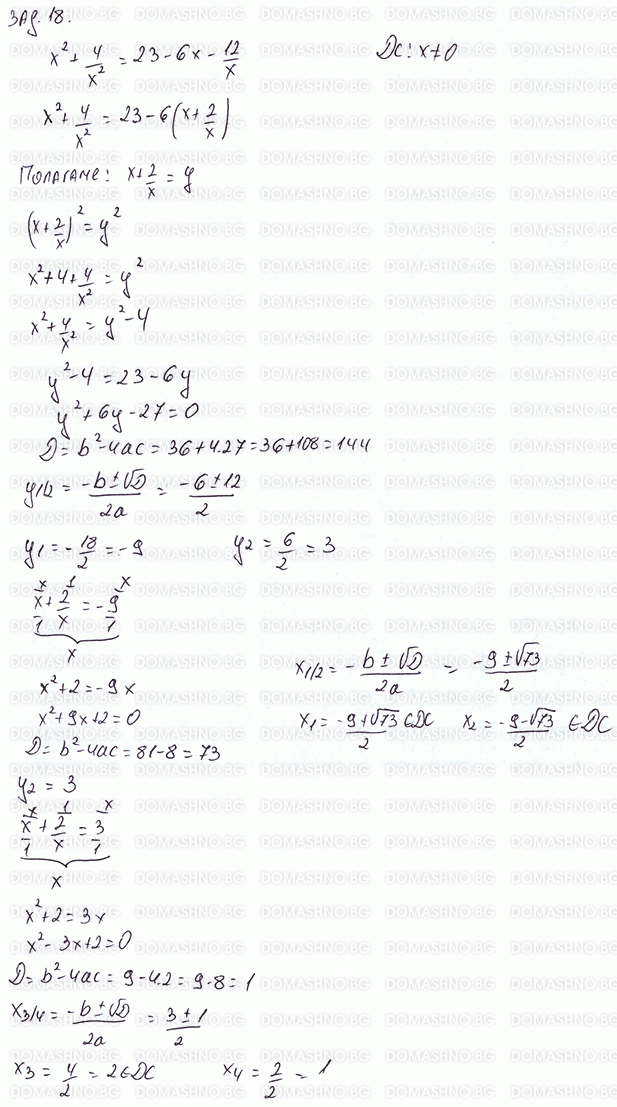 Зад. 18.
x² + 4/x² = 23 - 6x - 12/x    ДС: x≠0
x² + 4/x² = 23 - 6(x + 2/x)
Полагаме: x + 2/x = y
(x + 2/x)² = y²
x² + 4 + 4/x² = y²
x² + 4/x² = y² - 4
y² - 4 = 23 - 6y
y² + 6y - 27 = 0
D = b² - 4ac = 36 + 4.27 = 36 + 108 = 144
y1/2 = (-b ± √D)/2a = (-6 ± 12)/2
y1 = -18/2 = -9    y2 = 6/2 = 3
x/1 + 2/x = -9/1
x
x² + 2 = -9x
x² + 9x + 2 = 0
D = b² - 4ac = 81 - 8 = 73
x1/2 = (-b ± √D)/2a = (-9 ± √73)/2
x1 = (-9 + √73)/2 ∈ДС    x2 = (-9 - √73)/2 ∈ДС
y2 = 3
x/1 + 2/x = 3/1
x
x² + 2 = 3x
x² - 3x + 2 = 0
D = b² - 4ac = 9 - 4.2 = 9 - 8 = 1
x3/4 = (-b ± √D)/2a = (3 ± 1)/2
x3 = 4/2 = 2 ∈ДС    x4 = 2/2 = 1
DOMASHNO.BG